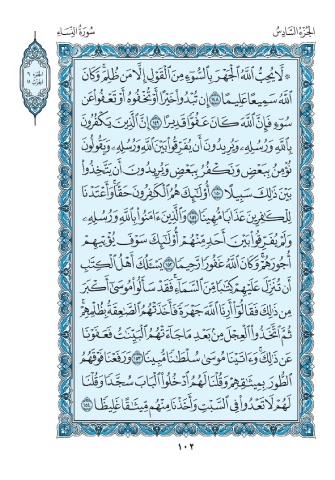 الجزء السادس
سورة النساء
الجزء ٦
الحزب ١١
۞ لَّا يُحِبُّ ٱللَّهُ ٱلْجَهْرَ بِٱلسُّوٓءِ مِنَ ٱلْقَوْلِ إِلَّا مَن ظُلِمَ وَكَانَ
ٱللَّهُ سَمِيعًا عَلِيمًا ١٤٨ إِن تُبْدُوا۟ خَيْرًا أَوْ تُخْفُوهُ أَوْ تَعْفُوا۟ عَن
سُوٓءٍ فَإِنَّ ٱللَّهَ كَانَ عَفُوًّا قَدِيرًا ١٤٩ إِنَّ ٱلَّذِينَ يَكْفُرُونَ
بِٱللَّهِ وَرُسُلِهِۦ وَيُرِيدُونَ أَن يُفَرِّقُوا۟ بَيْنَ ٱللَّهِ وَرُسُلِهِۦ وَيَقُولُونَ
نُؤْمِنُ بِبَعْضٍ وَنَكْفُرُ بِبَعْضٍ وَيُرِيدُونَ أَن يَتَّخِذُوا۟
بَيْنَ ذَٰلِكَ سَبِيلًا ١٥٠ أُو۟لَٰٓئِكَ هُمُ ٱلْكَٰفِرُونَ حَقًّا وَأَعْتَدْنَا
لِلْكَٰفِرِينَ عَذَابًا مُّهِينًا ١٥١ وَٱلَّذِينَ ءَامَنُوا۟ بِٱللَّهِ وَرُسُلِهِۦ
وَلَمْ يُفَرِّقُوا۟ بَيْنَ أَحَدٍ مِّنْهُمْ أُو۟لَٰٓئِكَ سَوْفَ يُؤْتِيهِمْ
أُجُورَهُمْ وَكَانَ ٱللَّهُ غَفُورًا رَّحِيمًا ١٥٢ يَسْـَٔلُكَ أَهْلُ ٱلْكِتَٰبِ
أَن تُنَزِّلَ عَلَيْهِمْ كِتَٰبًا مِّنَ ٱلسَّمَآءِ فَقَدْ سَأَلُوا۟ مُوسَىٰٓ أَكْبَرَ
مِن ذَٰلِكَ فَقَالُوٓا۟ أَرِنَا ٱللَّهَ جَهْرَةً فَأَخَذَتْهُمُ ٱلصَّٰعِقَةُ بِظُلْمِهِمْ
ثُمَّ ٱتَّخَذُوا۟ ٱلْعِجْلَ مِنۢ بَعْدِ مَا جَآءَتْهُمُ ٱلْبَيِّنَٰتُ فَعَفَوْنَا
عَن ذَٰلِكَ وَءَاتَيْنَا مُوسَىٰ سُلْطَٰنًا مُّبِينًا ١٥٣ وَرَفَعْنَا فَوْقَهُمُ
ٱلطُّورَ بِمِيثَٰقِهِمْ وَقُلْنَا لَهُمُ ٱدْخُلُوا۟ ٱلْبَابَ سُجَّدًا وَقُلْنَا
لَهُمْ لَا تَعْدُوا۟ فِى ٱلسَّبْتِ وَأَخَذْنَا مِنْهُم مِّيثَٰقًا غَلِيظًا ١٥٤
١٠٢